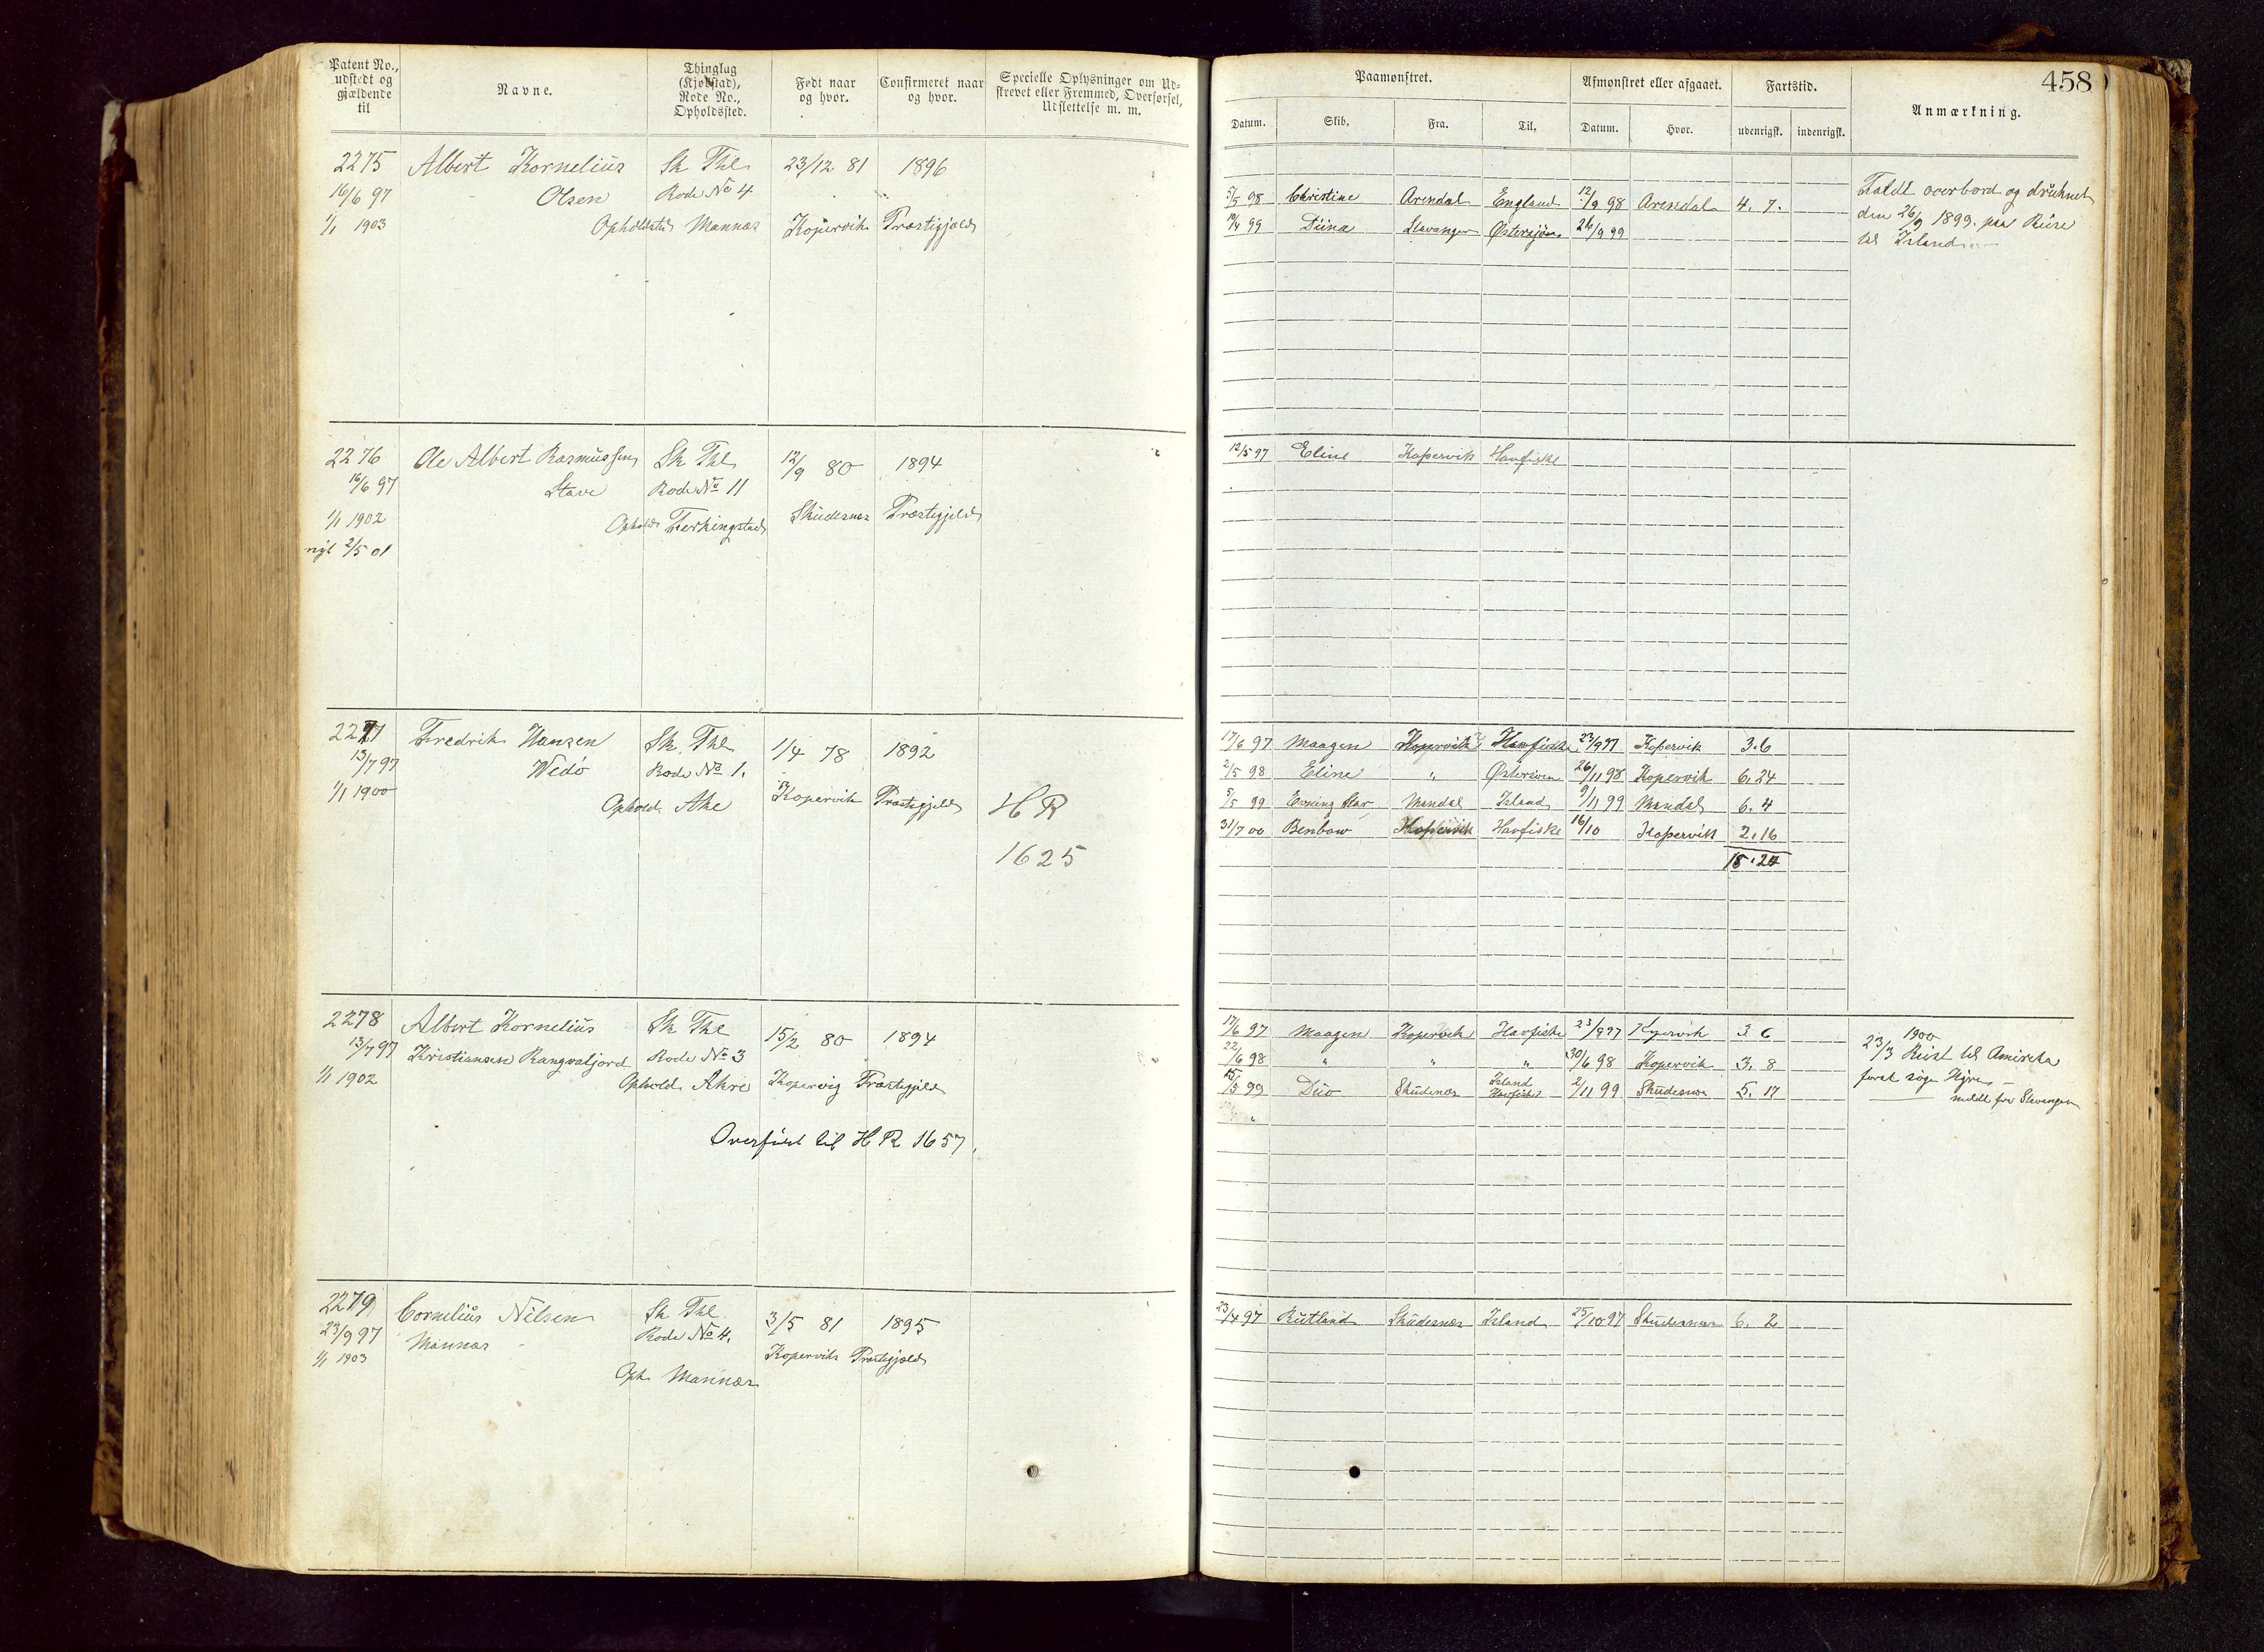 Patent No., udstedt og gjældende til
Navne.
Thinglag (Kjøbstad), Rode No., Opholdssted.
Født naar og hvor.
Confirmeret naar og hvor.
Specielle Oplysninger om Udskrevet eller Fremmed, Overførsel, Udslettelse m. m.
2275 Albert Kornelius Sk Thl 23/12 81 1896
16/6 97 Olsen Rode No 4
1/1 1903 Opholdssted Mannæs Kopervik Præstigjæld
2276 Ole Albert Rasmussen Sk Thl 12/9 80 1894
16/6 97 Stave Rode No 11
1/1 1902 Ophold Ferkingstad Skudesnæs Præstigjeld
nyt 2/5 01
2277 Fredrik Hansen Sk Thl 1/4 78 1892
13/7 97 Wedø Rode No 1.
1/1 1900 Ophold. Ahe Kopervik Præstegjeld HR
1625
2278 Albert Kornelius Sk Thl 15/2 80 1894
13/7 97 Kristiansen Rangvaljord Rode No 3
1/1 1902 Ophold. Ahre Kopervig Præstegjeld
Overført til HR 1657.
2279 Cornelius Nilsen Sk Thl 3/5 81 1895
23/9 97 Mannæs Rode No 4.
1/1 1903 Kopervik Præstegjæld
Oph. Mannæs
458
Paamønstret.
Afmønstret eller afgaaet.
Fartstid.
Anmærkning.
Datum. Skib. Fra. Til. Datum. Hvor. udenrigsk. indenrigsk.
5/5 98 Christine Arendal England 12/9 98 Arendal 4. 7.
19/4 99 Diina Stavanger Østersjøen 26/9 99
Faldt overbord og druknet
den 26/9 1899. paa Reise
til Island
12/5 97 Eline Kopervik Havfiske
17/6 97 Maagen Kopervik Havfiske 23/9 97 Kopervik 3.6
2/5 98 Eline " Østersøen 26/11 98 Kopervik 6.24
5/5 99 Evning Star Mandal Island 9/11 99 Mandal 6. 4
31/7 00 Benbow Kopervik Havfiske 16/10 Kopervik 2.16
18.24
17/6 97 Maagen Kopervik Havfiske 23/9 97 Kopervik 3 6
22/6 98 " " " 30/6 98 Kopervik 3. 8
15/5 99 Duo Skudenæs Island Havfiske 2/11 99 Skudesnæs 5. 17
1900
23/3 Reist til Amireka
forat søge Hyre
meldt fra Stavanger
23/4 97 Rutland Skudesnæs Island 25/10 97 Skudesnæs 6. 2